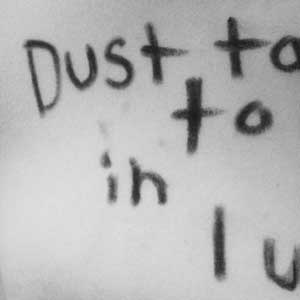 Dust to
to
in
I u